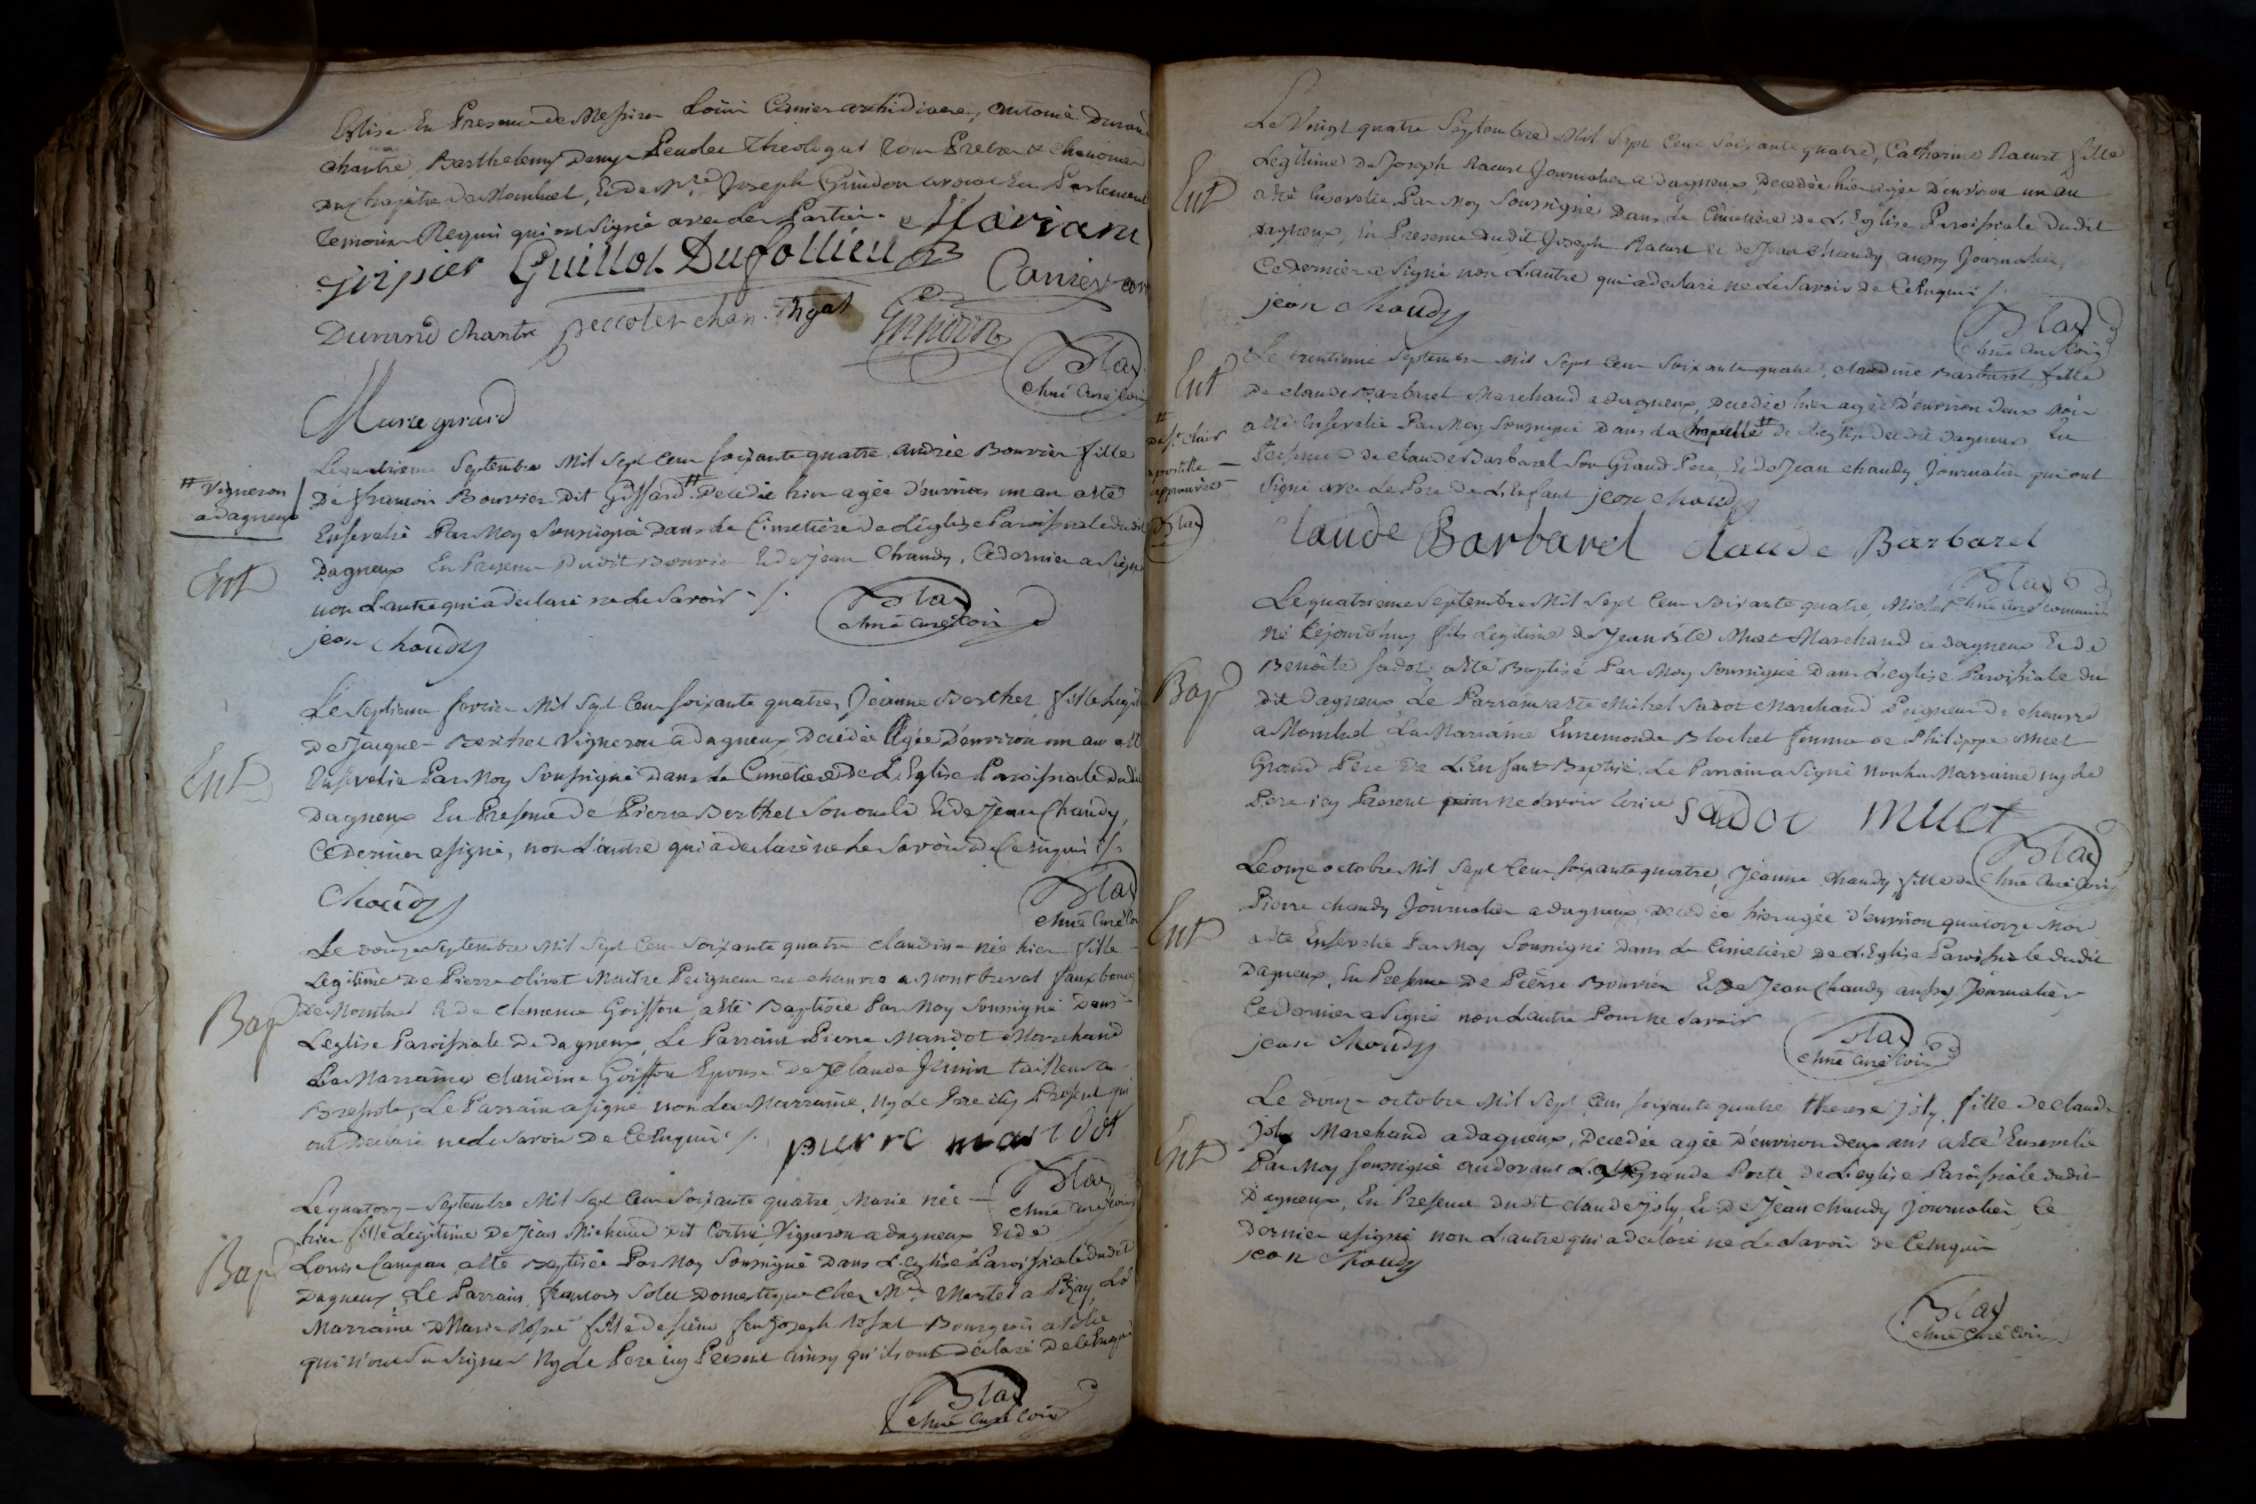 Eglise En Presence de Messire Louis Carrier archidiacre, antoine Durand
chantre, Barthelemy Denys Pecolet Theologal tous Pretres & chanoines
du Chapitre de Montluel, Et de Mre Joseph Guindon avocat En Parlement
temoins Requis qui ont signé avec les Parties. Mariant
Guillot Dufollieu Carrier
Durand chantre peccolet chan. Thgal
Blax
chne curé Com
Marie girard
Septembre Mil Sept Cent soixante quatre, andrée Bouvier fille
De francois Bouvier Dit Giffard # Decedée hier agée d'environ un an a eté
# Vigneron
a dagneux
Ensevelie Par Moy Soussigné Dans le Cimetiere de L'église Paroissiale dudit
Ent
Dagneux En Presence Dudit Bouvier Et de Jean Chaudy, Ce dernier a signé
non L'autre qui a declaré ne le Savoir ./.
jean chaudy
Blax
chne curé Com
Le Septieme Mil Sept Cent soixante quatre, Jeanne Berthet fille
Ent
De Jacque Berthet Vigneron a dagneux Decedée Agée d'environ un an a eté
Ensevelie Par Moy Soussigné Dans le Cimetiere de L'Eglise Paroissiale Dudit
Dagneux En Presence de Pierre Berthet Son oncle Et de Jean Chaudy,
Ce Dernier a signé, non L'autre qui a declaré ne le Savoir de ce Enquis ./.
chaudy
Blax
chne curé Com
Le douze Septembre Mil Sept Cent soixante quatre claudine née hier fille
Legitime de Pierre olivet Maitre Peigneur de chanvre a faux bourg
Bap
de Montluel Et de Goiffon, a eté Baptisée Par Moy Soussigné Dans
L'eglise Paroissiale de dagneux, Le Parrain Pierre Mandot Marchand
La Marraine claudine Goiffon Epouse de Claude tailleur a
Bressole, Le Parrain a signé non la Marraine, Ny le Pere icy Present qui
ont Declaré ne le Savoir De ce Enquis ./. pierre mandot
Blax
chne curé Com
Le quatorze Septembre Mil Sept Cent Soixante quatre, Marie née
hier fille Legitime De Jean Michaud dit Vigneron a dagneux Et de
Bap
Louise Campan a eté Baptisée Par Moy Soussigné Dans L'église Paroissiale dudit
Dagneux, Le Parrain, francois Domestique Chez Mr Martel a Pizay, La
Marraine Marie fille de feu Joseph Bourgeois
qui n'ont Su signer Ny le Pere icy Present ainsy qu'ils ont declaré de ce Enquis
Blax
chne curé Com
Le Vingt quatre Septembre Mil Sept Cent Soixante quatre, Catherine Racurt fille
Ent
Legitime De Joseph Racurt Journalier a Dagneux, Decedée hier agée d'environ un an
a eté Ensevelie Par Moy Soussigné Dans Le Cimetiere de L'Eglise Paroissiale Dudit
Dagneux, En Presence Dudit Joseph Racurt et de Jean Chaudy aussy Journalier,
Ce Dernier a Signé non L'autre qui a declaré ne le Savoir de Ce Enquis ./.
jean chaudy
Blax
chne curé Com
Ent
Le trentieme Septembre Mil Sept Cent Soixante quatre, claudine Barbaret fille
De claude Barbaret Marchand a dagneux, Decedée hier agée d'environ deux
a eté Ensevelie Par Moy Soussigné Dans La Chapelle # de L'eglise dudit Dagneux En
# De St Clair
apostille
approuvée
Blax
Presence de claude Barbaret Son Grand Pere, Et de Jean chaudy Journalier qui ont
Signé avec Le Pere de L'Enfant jean chaudy
Claude Barbaret claude Barbaret
Blax
chne curé commis
Le quatrieme Septembre Mil Sept Cent Soixante quatre, Michel
né Cejourdhuy fils Legitime de Jean Bte Miet Marchand a dagneux Et de
Bap
Benoite Sadot, a eté Baptisé Par Moy Soussigné Dans L'eglise Paroissiale du
dit Dagneux, Le Parrain a eté Michel Sadot Marchand Peigneur de chanvre
a Montluel La Marraine Ennemonde Blachet femme de Philippe Miet
Grand Pere de L'Enfant Baptisé. Le Parrain a Signé Non la Marraine ny le
Pere icy Present pour ne Savoir Ecrire sadot miiet
Blax
chne curé Com
Le onze octobre Mil Sept Cent soixante quatre, Jeanne chaudy, fille de
Ent
Pierre chaudy Journalier a dagneux decedée hier agée d'environ quatorze Mois
a eté Ensevelie Par Moy Soussigné Dans Le Cimetiere de L'Eglise Paroissiale dudit
Dagneux, En Presence De Pierre Bouvier Et De Jean Chaudy aussy Journalier
Ce Dernier a Signé non L'autre Pour ne Savoir
jean chaudy
Blax
chne curé Com
Le douze octobre Mil Sept Cent soixante quatre therese joly, fille De claude
Ent
joly Marchand a dagneux, Decedée agée d'environ deux ans a eté Ensevelie
Par Moy Soussigné au devant La Grande Porte de L'eglise Paroissiale dudit
Dagneux, En Presence dudit claude joly, Et de Jean chaudy Journalier Ce
Dernier a signé non L'autre qui a declaré ne le Savoir de Ce Enquis
jean chaudy
Blax
chne curé Com